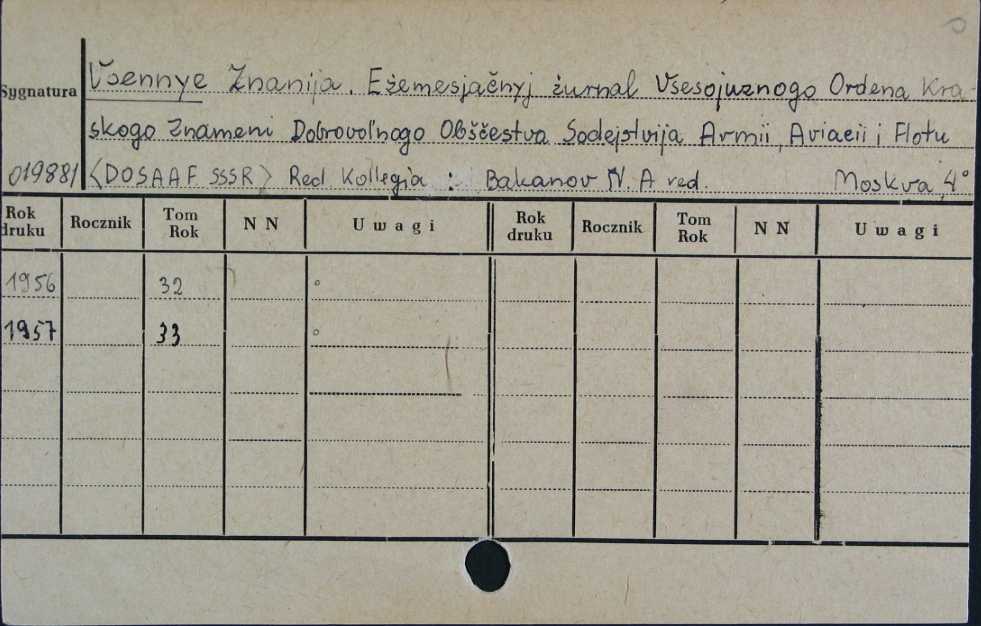 Voennye Znanija. Ežemesjačnyj žurnal Vsesojuznogo Ordena Kra-
Sygnatura
skogo Znameni Dobrovol'nogo Obščestva Sodejstvija Armii, Aviacii i Flotu
019881 <DOSAAF SSSR> Red Kollegia: Bakanov N. A red. Moskva, 4°
Rok druku Rocznik Tom Rok N N Uwagi Rok druku Rocznik Tom Rok N N Uwagi
1956 32
1957 33